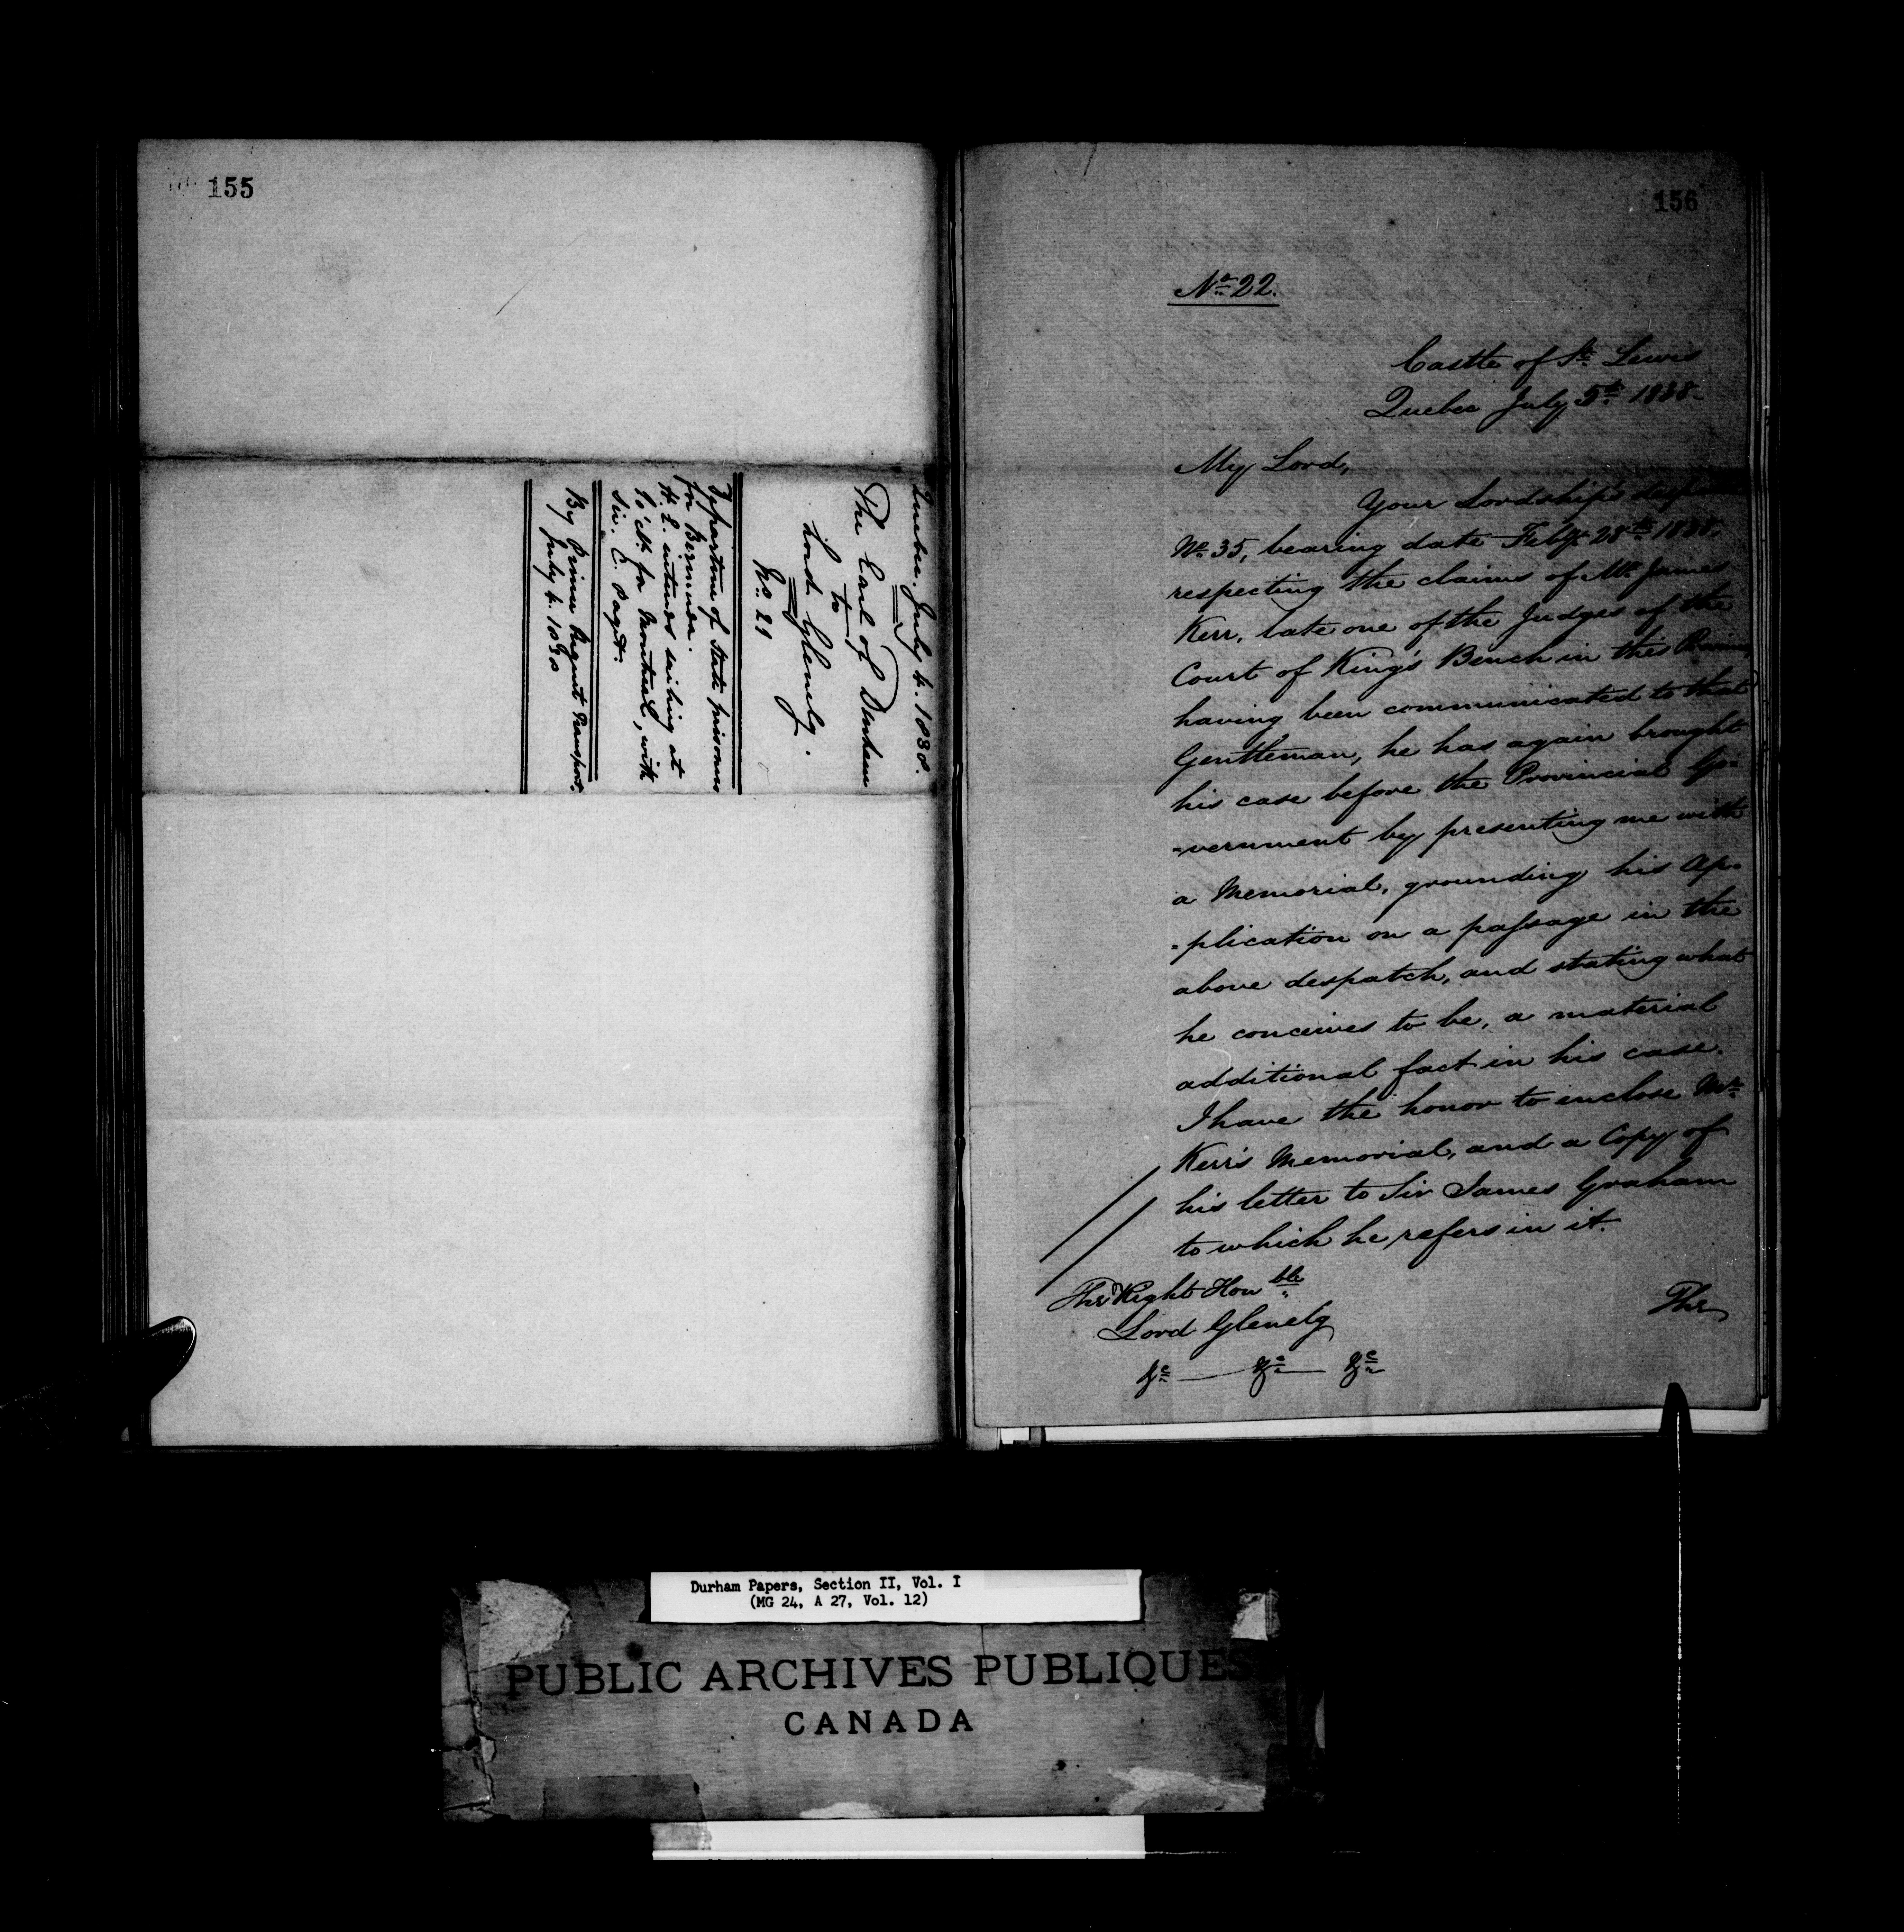 155
Quebec. July 4. 1838.
The Earl of Durham
to
Lord Glenelg.
No. 21
Departure of State prisoners
for Bermuda.
H. E. intends sailing at
10 o'clk for Montreal, with
Sir. C. Paget.
By Prince Regent Transport.
July 4. 1838
156
No. 22.
Castle of St. Lewis
Quebec July 5th 1838.
My Lord,
Your Lordship's
No. 35, bearing date Feby 28th 1838.
respecting the claims of Mr. James
Kerr, late one of the Judges of the
Court of King's Bench in this
having been communicated to that
Gentleman, he has again brought
his case before the Provincial Go=
=vernment by presenting me with
a Memorial, grounding his ap=
=plication on a passage in the
above despatch, and stating what
he conceives to be, a material
additional fact in his case.
I have the honor to inclose Mr.
Kerr's Memorial, and a Copy of
his letter to Sir James Graham
to which he refers in it.
The Right Honble
Lord Glenelg
&c — &c — &c
The
Durham Papers, Section II, Vol. I
(MG 24, A 27, Vol. 12)
PUBLIC ARCHIVES PUBLIQUES
CANADA